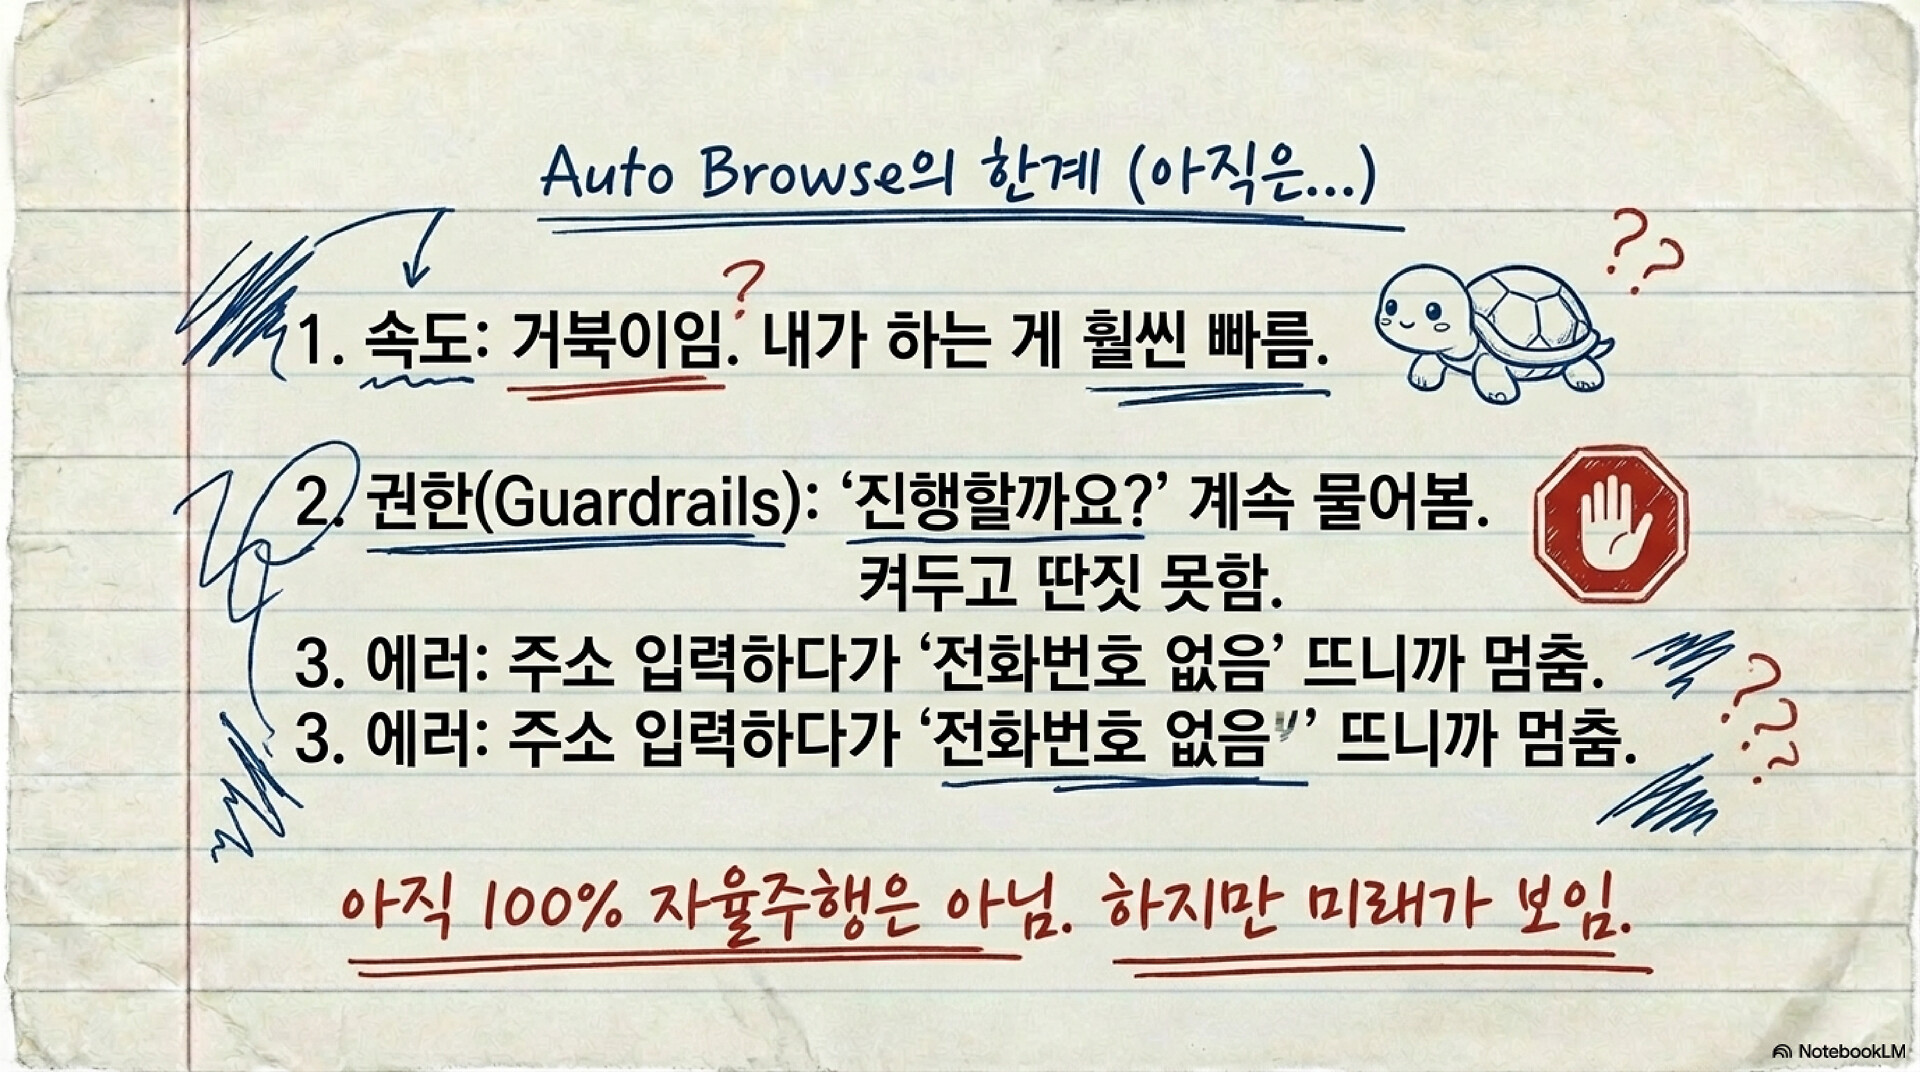 Auto Browse의 한계 (아직은...)
??
?
1. 속도: 거북이임. 내가 하는 게 훨씬 빠름.
2. 권한(Guardrails): ‘진행할까요?’ 계속 물어봄.
켜두고 딴짓 못함.
3. 에러: 주소 입력하다가 ‘전화번호 없음’ 뜨니까 멈춤.
???
3. 에러: 주소 입력하다가 ‘전화번호 없음’ 뜨니까 멈춤.
아직 100% 자율주행은 아님. 하지만 미래가 보임.
NotebookLM